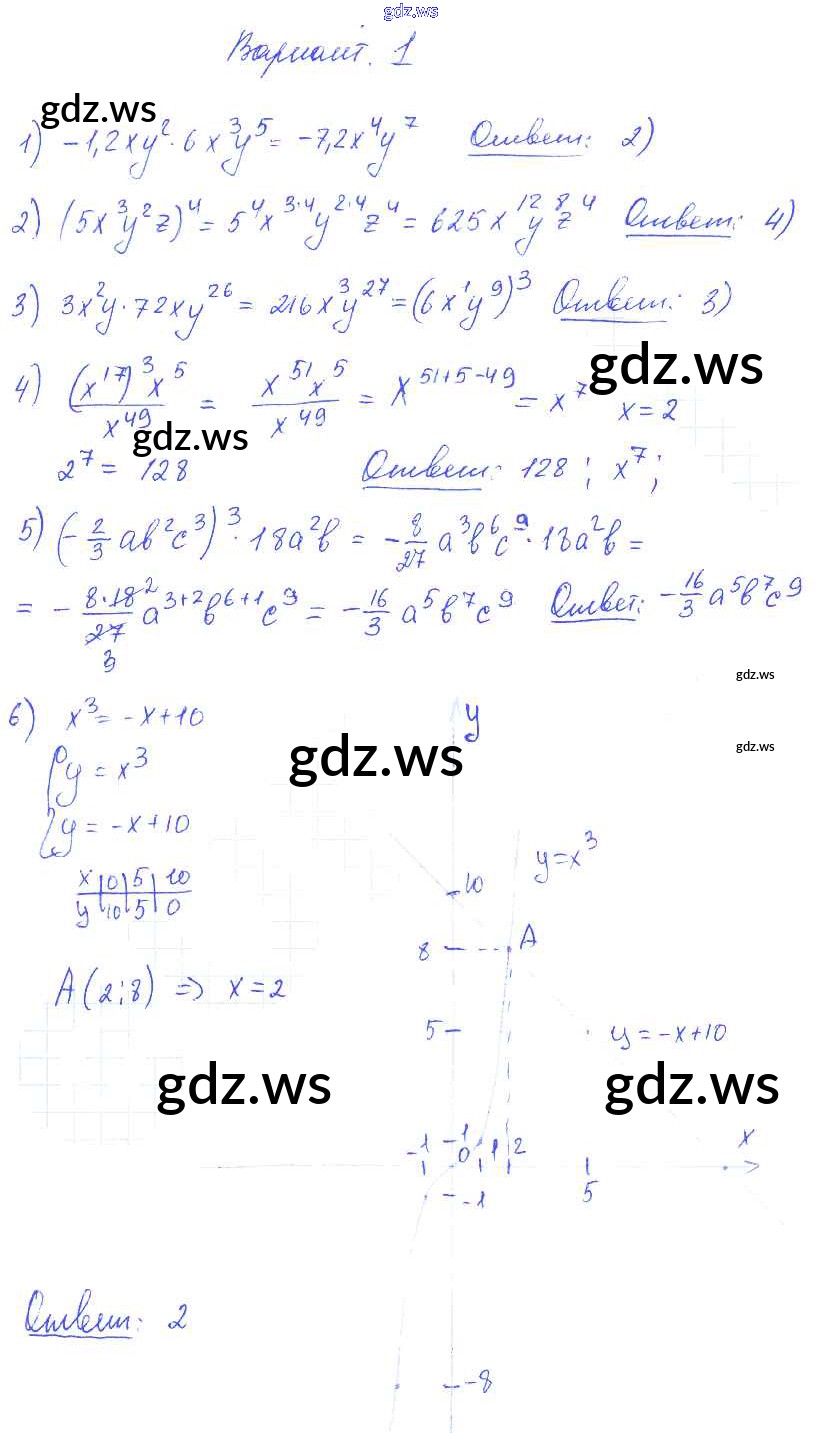 gdz.ws
Вариант. 1
gdz.ws
1) -1,2xy²·6x³y⁵ = -7,2x⁴y⁷ Ответ: 2)
2) (5x³y²z)⁴ = 5⁴x³·⁴y²·⁴z⁴ = 625x¹²y⁸z⁴ Ответ: 4)
3) 3x²y·72xy²⁶ = 216x³y²⁷ = (6x¹y⁹)³ Ответ: 3)
gdz.ws
4) (x¹⁷)³x⁵/x⁴⁹ = x⁵¹x⁵/x⁴⁹ = x⁵¹⁺⁵⁻⁴⁹ = x⁷ x = 2
gdz.ws
2⁷ = 128 Ответ: 128 ; x⁷;
5) (-2/3 ab²c³)³·18a²b = -8/27 a³b⁶c⁹·18a²b =
= - 8·18²/27 3 a³⁺²b⁶⁺¹c⁹ = -16/3 a⁵b⁷c⁹ Ответ: -16/3 a⁵b⁷c⁹
gdz.ws
6) x³ = -x+10 y
gdz.ws
gdz.ws
{y = x³
{y = -x+10
y=x³
x 0 5 10
y 10 5 0
10
8 A
A(2;8) => x = 2
5 y = -x+10
gdz.ws gdz.ws
-1 1 0 1 2 x
-1 5
Ответ: 2
-8